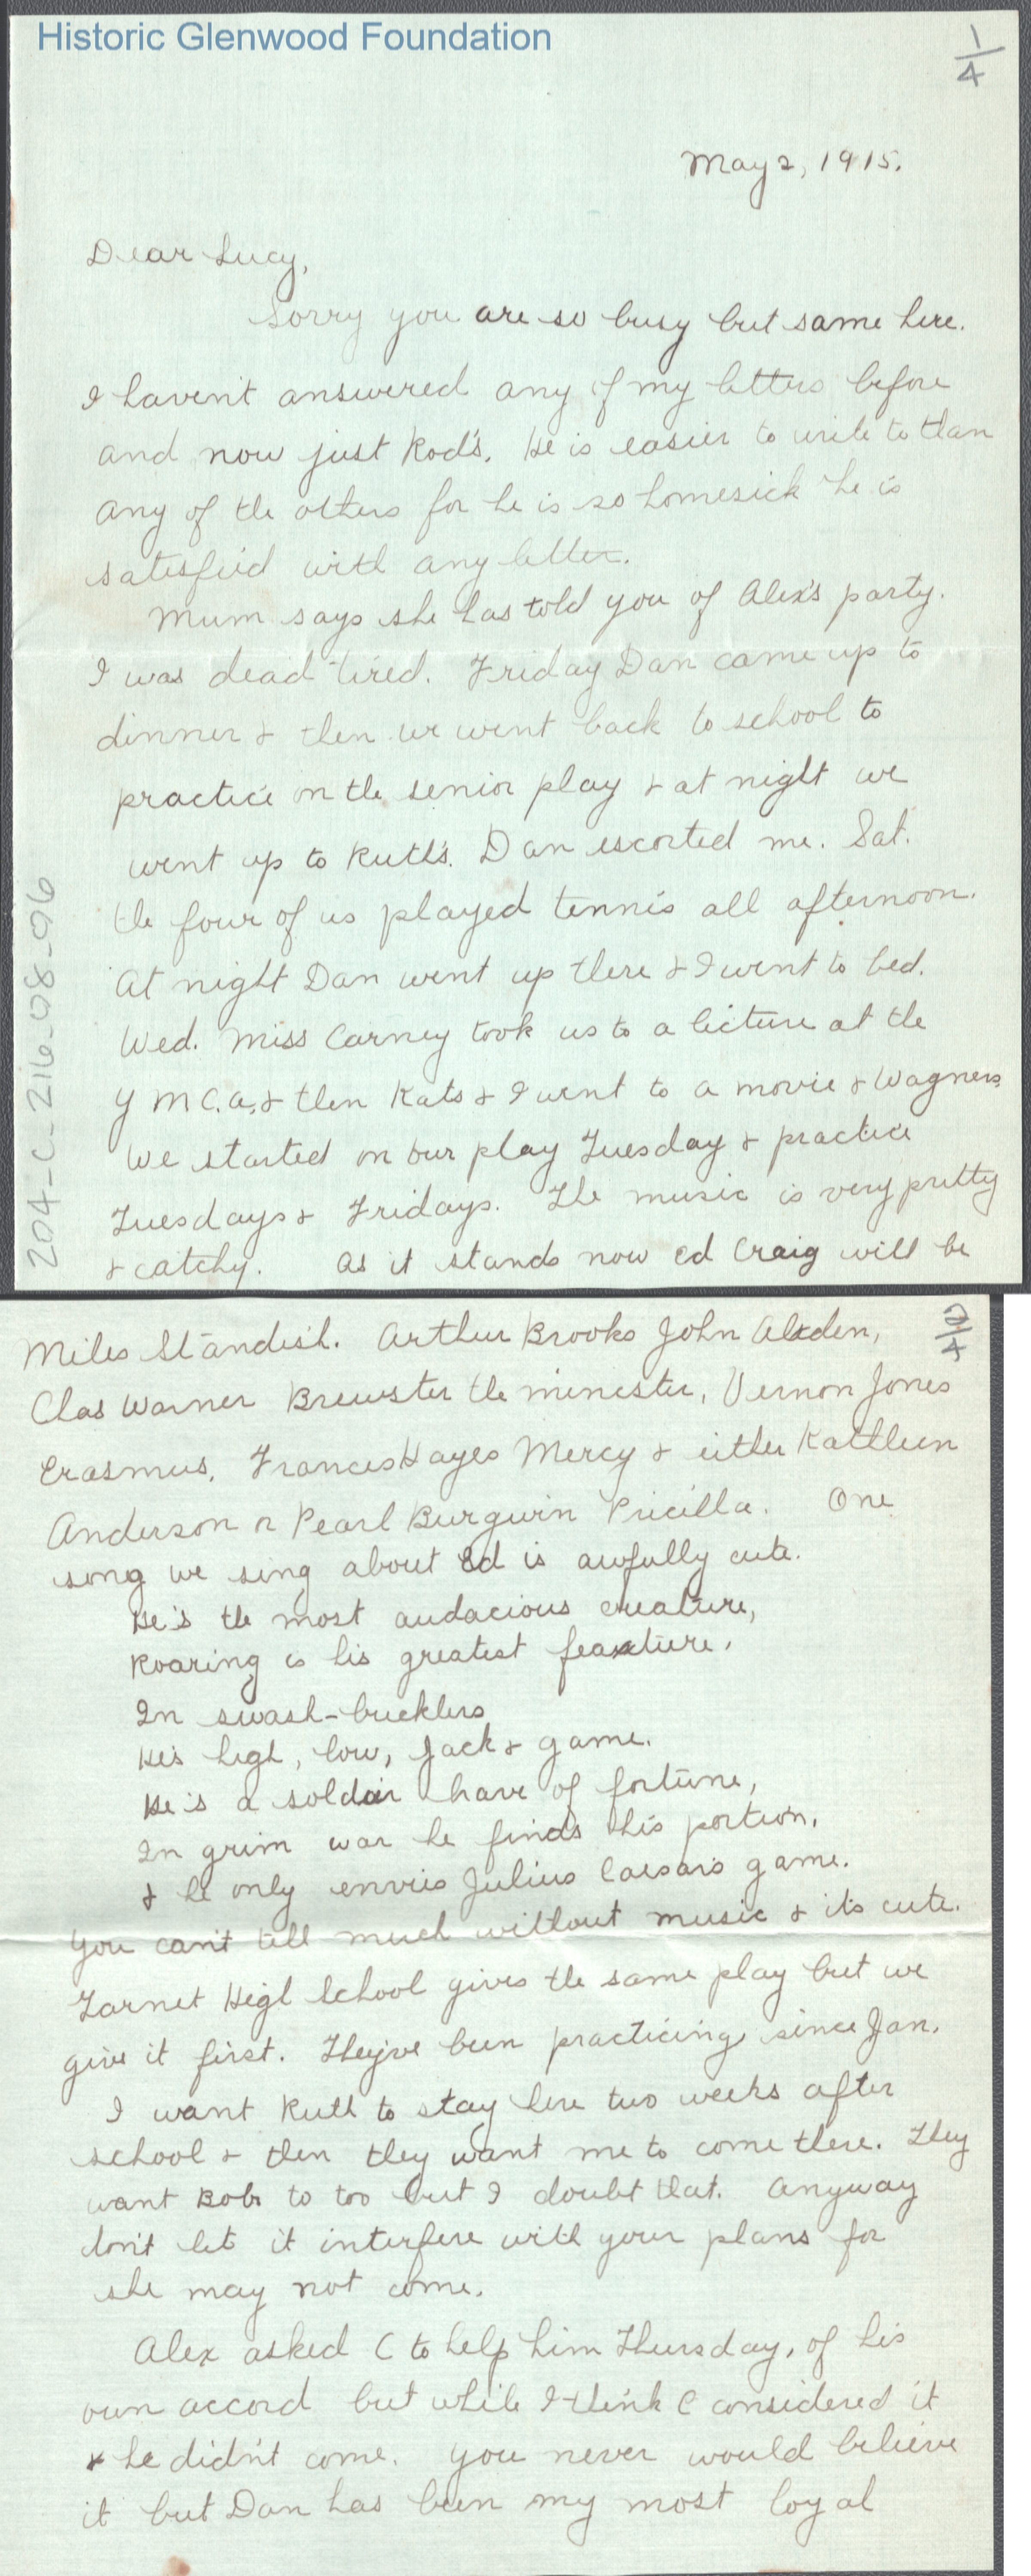 Historic Glenwood Foundation
1/4
May 2, 1915.
Dear Lucy,
Sorry you are so busy but same here.
I haven't answered any of my letters before
and now just Rod's. He is easier to write to than
any of the others for he is so homesick he is
satisfied with any letter.
Mum says she has told you of Alex's party.
I was dead tired. Friday Dan came up to
dinner & then we went back to school to
practice on the senior play & at night we
went up to Ruth's. Dan escorted me. Sat.
the four of us played tennis all afternoon.
At night Dan went up there & I went to bed.
Wed. Miss Carney took us to a lecture at the
Y M C.A. & then Kats & I went to a movie & Wagners.
We started on our play Tuesday & practice
Tuesdays & Fridays. The music is very pretty
& catchy. As it stands now Ed Craig will be
204-C-216-08-96
2/4
Miles Standish. Arthur Brooks John Alden,
Chas Warner Brewster the minester, Vernon Jones
Erasmus, Frances Hayes Mercy & either Kathleen
Anderson or Pearl Burgwin Pricilla. One
song we sing about Ed is awfully cute.
He's the most audacious creature,
Roaring is his greatest feature,
In swash-bucklers
He's high, low, Jack & game.
He's a soldier have of fortune,
In grim war he finds his portion,
& he only envies Julius Caesar's game.
You can't tell much without music & its cute.
Tarnet High School gives the same play but we
give it first. They've been practicing since Jan.
I want Ruth to stay here two weeks after
school & then they want me to come there. They
want Bob to too but I doubt that. Anyway
don't let it interfere with your plans for
she may not come.
Alex asked C to help him Thursday, of his
own accord but while I think C considered it
he didn't come. You never would believe
it but Dan has been my most loyal